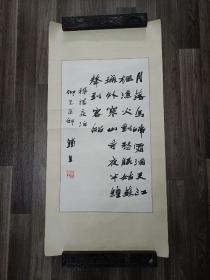 月落烏啼霜滿天江
楓漁火對愁眠姑蘇
城外寒山寺夜半鐘
聲到客船
楓橋夜泊